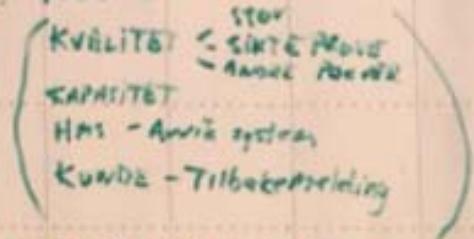 STØV
KVALITET - SIKTEPRØVE
- ANDRE PRØVER
KAPASITET
HMS - Avvik system
KUNDE - Tilbakemelding